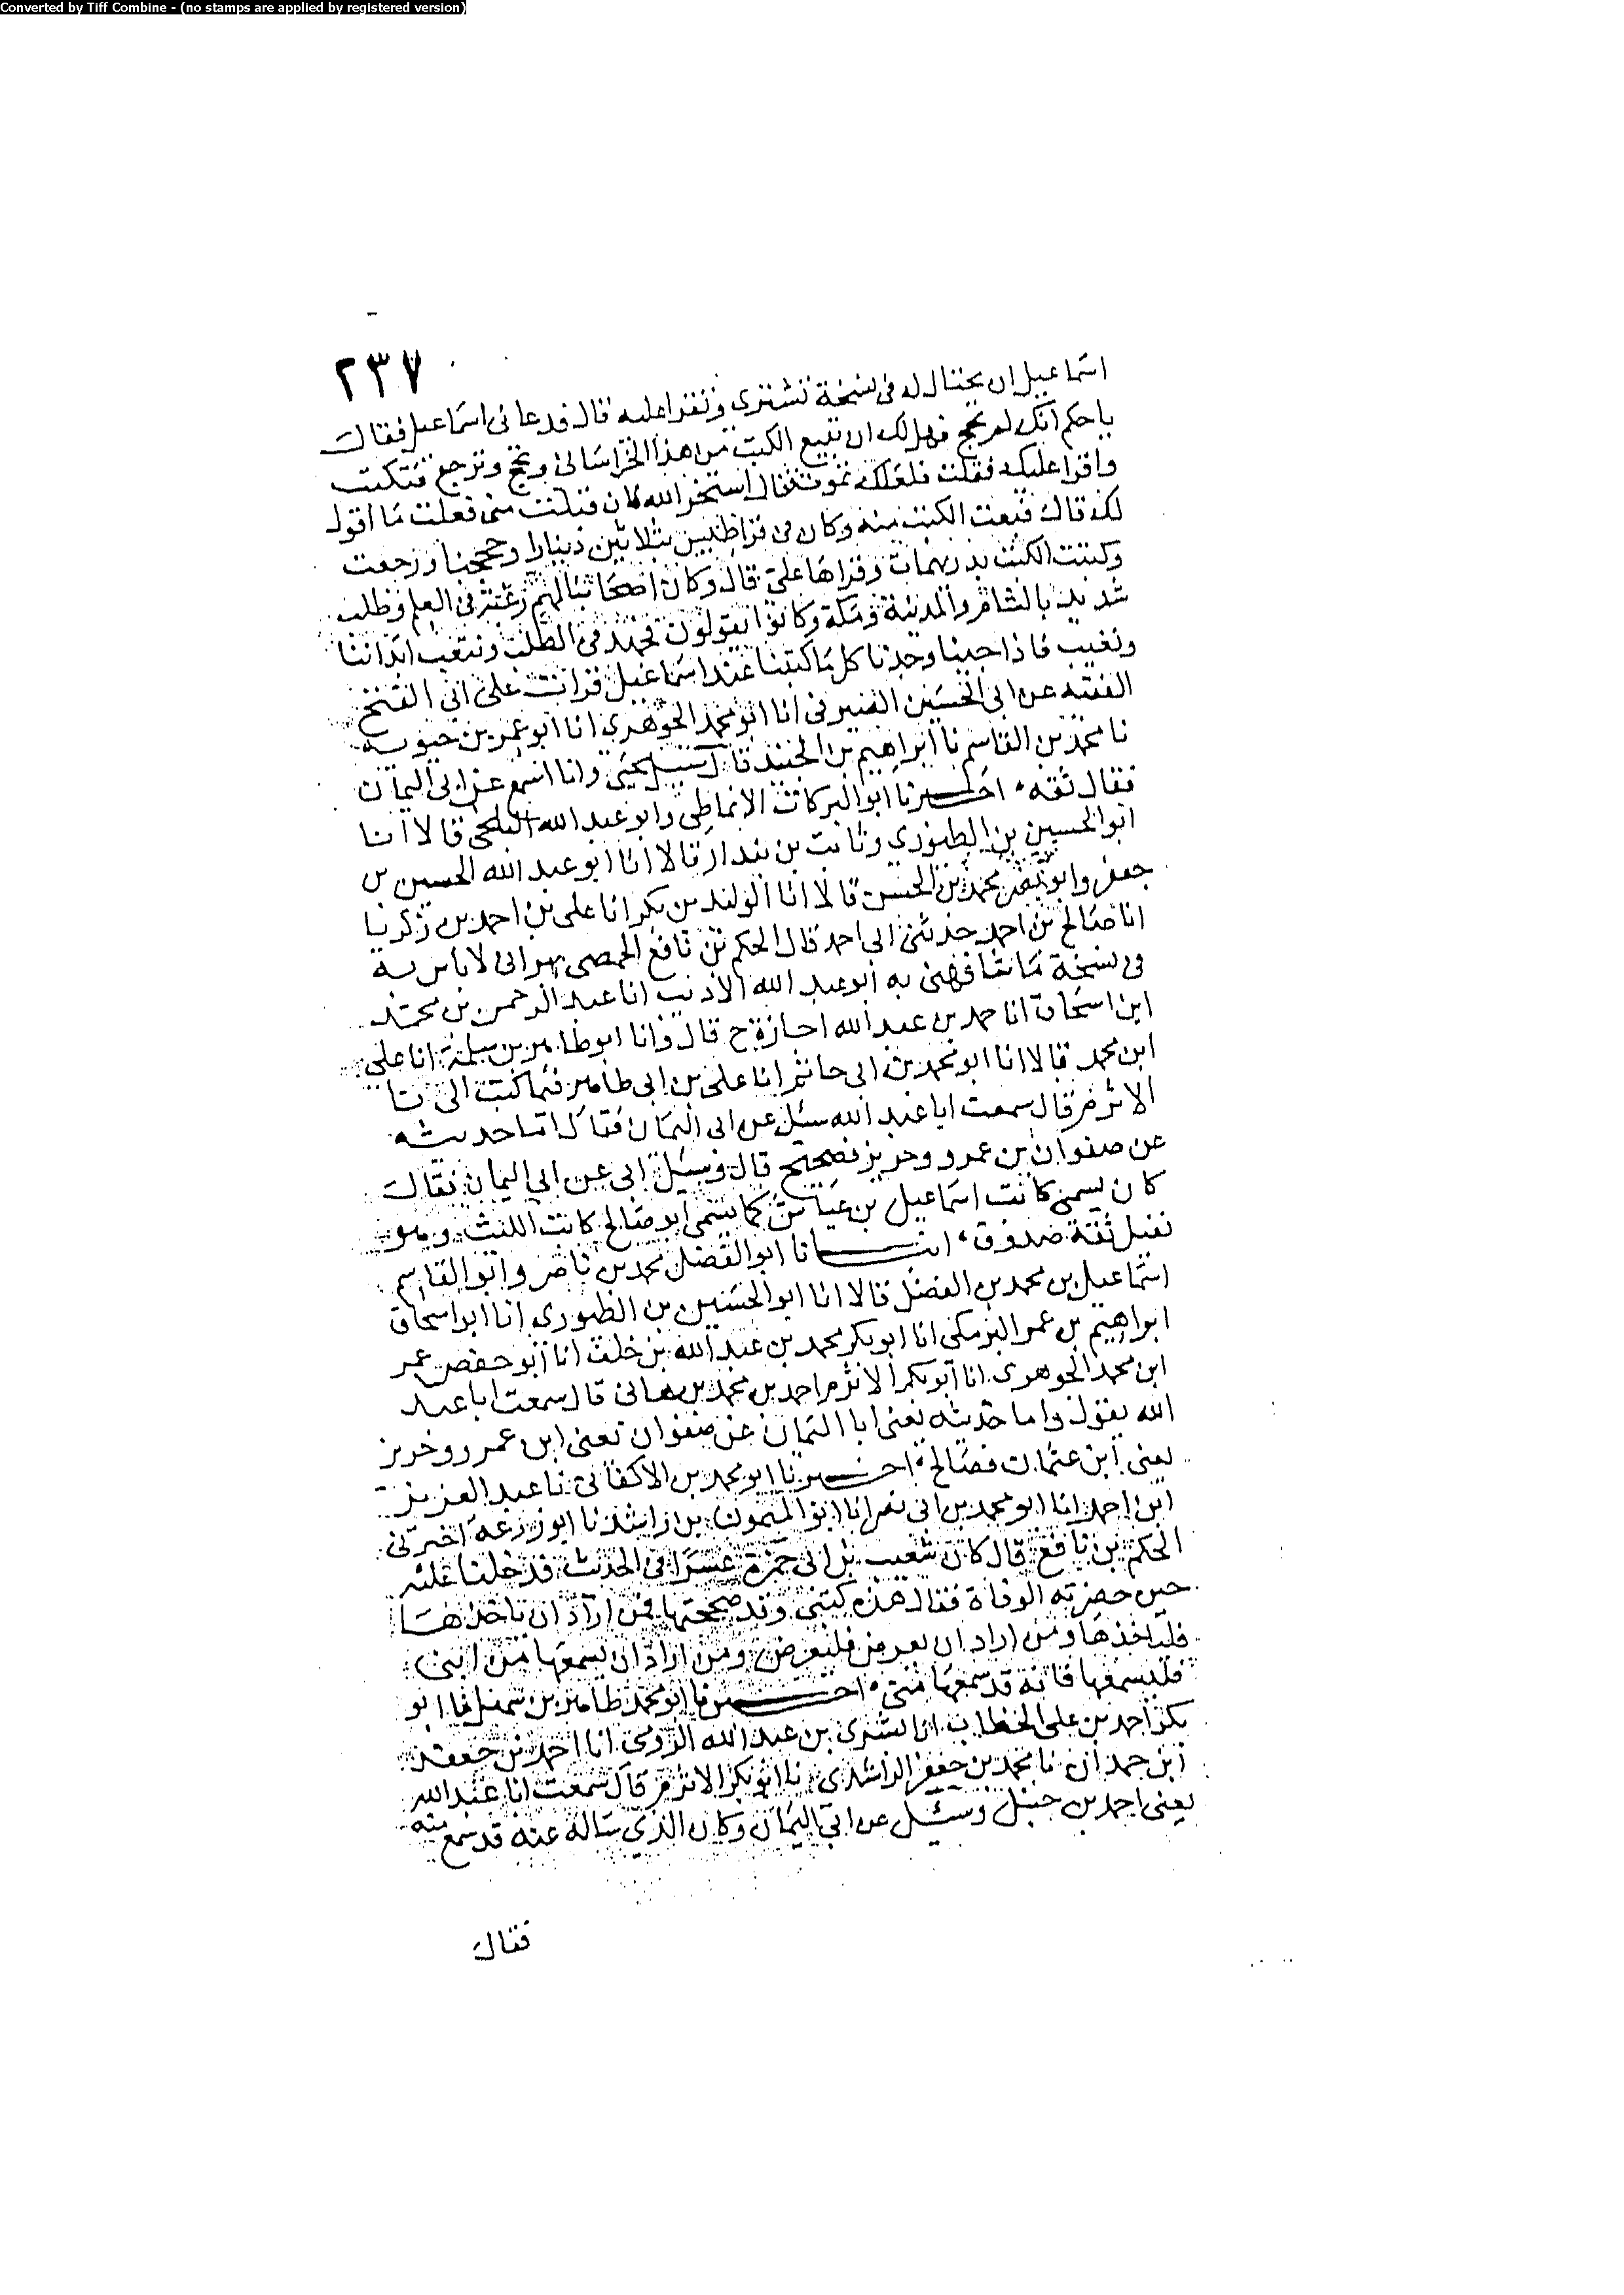 Converted by Tiff Combine - (no stamps are applied by registered version)
٢٣٧
اسماعيل ان يحتال له في نسخة تشترى وتقرا عليه قال فدعانى اسماعيل فقال
يا حكم انك لم تحج فهل لك ان تبيع الكتب من هذا الخراسانى وتحج وترجع فتكتب
واقرا عليك فقلت فلعلك تموت فقال استخر الله فان قبلت منى فعلت ما اقول
لك قال فبعت الكتب منه وكان فى قراطيس بثلاثين دينارا وحججنا ورجعت
وكتبت الكتب بدريهمات وقراها على قال وكان اصحابنا لهم رغبة فى العلم وطلب
شديد بالشام والمدينة ومكة وكانوا يقولون نجهد فى الطلب ونتعب ابداننا
ونغيب فاذا جينا وجدنا كل ما كتبنا عند اسماعيل قرات على ابى الفتح
الفقيه عن ابى الحسين الصيرفى انا ابو محمد الجوهرى انا ابو عمر بن حيويه
نا محمد بن القاسم نا ابراهيم بن الجنيد قال سئل يحيى وانا اسمع عن ابى اليمان
فقال ثقه اخبرنا ابو البركات الانماطى وابو عبد الله البلخى قالا انا
ابو الحسين بن الطيورى وثابت بن بندار قالا انا ابو عبد الله الحسين بن
جعفر وابو نصر محمد بن الحسن قالا انا الوليد بن بكر انا على بن احمد بن زكريا
انا صالح بن احمد حدثنى ابى احمد قال الحكم بن نافع الحمصى بهرانى لا باس به
فى نسخة ما شافهنى به ابو عبد الله الاديب انا عبد الرحمن بن محمد
ابن اسحاق انا حمد بن عبد الله اجازة ح قال وانا ابو طاهر بن سلمة انا على
ابن محمد قالا انا ابو محمد بن ابى حاتم انا على بن ابى طاهر فيما كتب الى نا
الاثرم قال سمعت ابا عبد الله سئل عن ابى اليمان فقال اما حديثه
عن صفوان بن عمرو وحريز فصحيح قال وسئل ابى عن ابى اليمان فقال
كان يسمى كاتب اسماعيل بن عياش كما يسمى ابو صالح كاتب الليث وهو
نبيل ثقة صدوق انبانا ابو الفضل محمد بن ناصر وابو القاسم
اسماعيل بن محمد بن الفضل قالا انا ابو الحسين بن الطيورى انا ابو اسحاق
ابراهيم بن عمر البرمكى انا ابو بكر محمد بن عبد الله بن خلف انا ابو حفص عمر
ابن محمد الجوهرى انا ابو بكر الاثرم احمد بن محمد بن هانى قال سمعت ابا عبد
الله يقول واما حديثه يعنى ابا اليمان عن صفوان يعنى ابن عمرو وحريز
يعنى ابن عثمان فصالح اخبرنا ابو محمد بن الاكفانى نا عبد العزيز
ابن احمد انا ابو محمد بن ابى نصر انا ابو الميمون بن راشد نا ابو زرعة اخبرنى
الحكم بن نافع قال كان شعيب بن ابى حمزة عسرا فى الحديث فدخلنا عليه
حين حضرته الوفاة فقال هذه كتبى وقد صححتها فمن اراد ان ياخذها
فلياخذها ومن اراد ان يعرض فليعرض ومن اراد ان يسمعها من ابنى
فليسمعها فانه قد سمعها منى اخبرنا ابو محمد طاهر بن سهل نا ابو
بكر احمد بن على الخطاب انا بشرى بن عبد الله الرومى انا احمد بن جعفر
ابن حمدان نا محمد بن جعفر الراشدى نا ابو بكر الاثرم قال سمعت ابا عبد الله
يعنى احمد بن حنبل وسئل عن ابى اليمان وكان الذى ساله عنه قد سمع منه
فقال